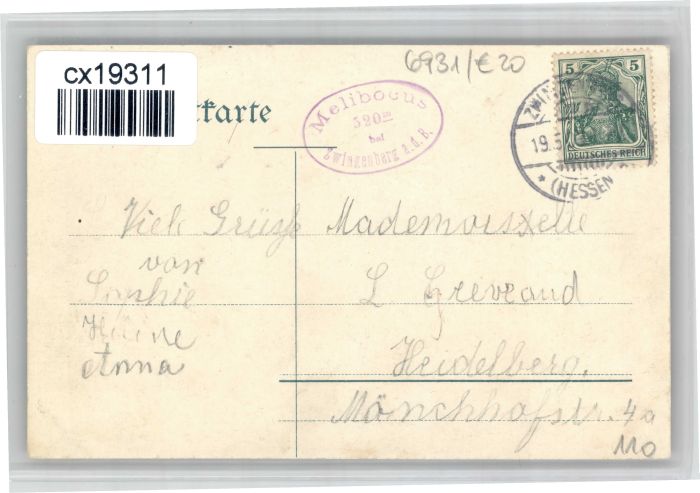 cx19311
6931/€20
tkarte
Melibocus
520m
bei
Zwingenberg a.d.B.
5
DEUTSCHES REICH
ZWIN
19.5
* (HESSEN
Viele Grüße
von
Sophie
Anna
Mademoiselle
L
Heidelberg.
Mönchhofstr. 4a
110